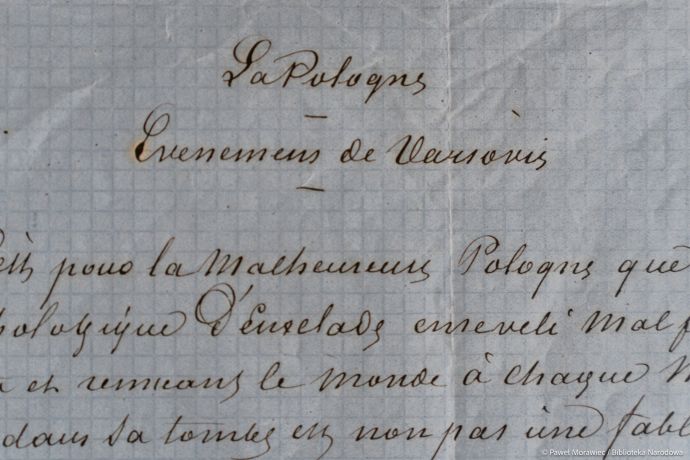 La Pologne
Evenemens de Varsovie
pour la Malheureuse Pologne que
D'Encelade enseveli Mal
et remuans le monde à chaque
dans sa tombe est non pas une fabl
© Paweł Morawiec / Biblioteka Narodowa